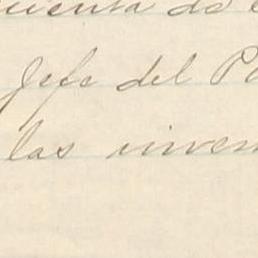 cuenta de
Jefe del Pa
las inven